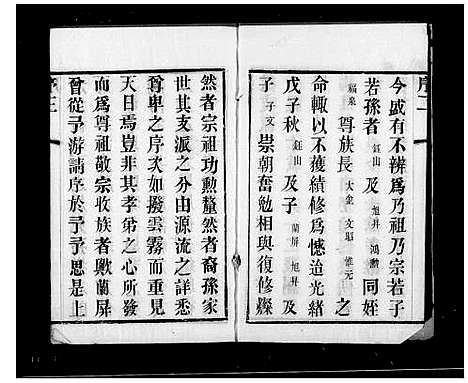 序二
今盛有不辨為乃祖乃宗若子
若孫者鈺山及旭昇鴻勳同姪
福泉尊族長大全文魁惟元之
命輒以不獲續修為憾迨光緒
戊子秋鈺山及子蘭屏旭昇及
子子文崇朝奮勉相與復修縣
然者宗祖功勲釐然者裔孫家
世其支派之分由源流之詳悉
尊卑之序次如撥雲霧而重見
天日焉豈非其孝弟之心所發
而為尊祖敬宗收族者歟蘭屏
曾從予游請序於予予思是上
序三